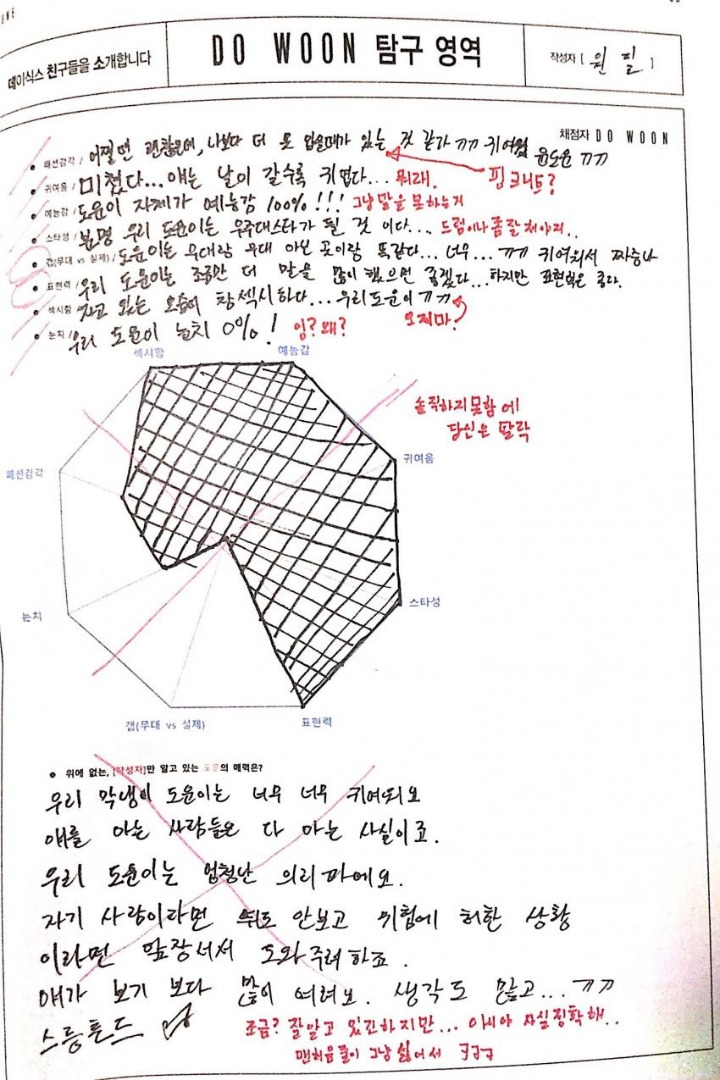 데이식스 친구들을 소개합니다
DO WOON 탐구 영역
작성자 [ 원 필 ]
채점자 DO WOON
패션감각 / 어쩔땐 괜찮은데, 나보다 더 못 입을때가 있는 것 같가 ㄲㄲ 귀여웡 윤도운 ㄲㄲ
핑크니트?
귀여움 / 미쳤다... 얘는 날이 갈수록 귀엽다... 뭐래.
예능감 / 도운이 자체가 예능감 100% !!! 그냥 말을 못하는거
스타성 / 분명 우리 도운이는 우주대스타가 될 것 이다... 드럼이나 좀 잘 쳐야지..
갭(무대 vs 실제) / 도운이는 무대랑 무대 아닌 곳이랑 똑같다... 너무... ㄲㄲ 귀여워서 짜증나
표현력 / 우리 도운이는 조금만 더 말을 많이 했으면 좋겠다... 하지만 표현력은 좋다.
섹시함 / 자고 있는 모습이 참 섹시하다... 우리 도운이 ㄲㄲ
오지마.
눈치 / 우리 도운이 눈치 0% ! 잉? 왜?
섹시함
예능감
솔직하지못함에
당신은 탈락
귀여움
패션감각
스타성
눈치
갭(무대 vs 실제)
표현력
위에 없는, [작성자]만 알고 있는 도운의 매력은?
우리 막냉이 도운이는 너무 너무 귀여워요
얘를 아는 사람들은 다 아는 사실이죠.
우리 도운이는 엄청난 의리파에요.
자기 사람이라면 뒤도 안보고 위험에 처한 상황
이라면 앞장서서 도와주려 하죠.
얘가 보기 보다 많이 여려요. 생각도 많고... ㄲㄲ
스릉흔드
조금? 잘알고 있긴하지만... 아니야 사실 정확해..
맨처음 줄이 그냥 싫어서 ㅋㅋㅋ